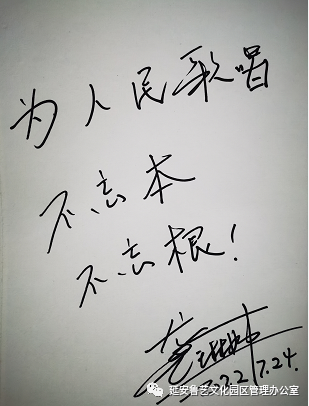 为人民歌唱
不忘本
不忘根!
2022.7.24.
延安鲁艺文化园区管理办公室